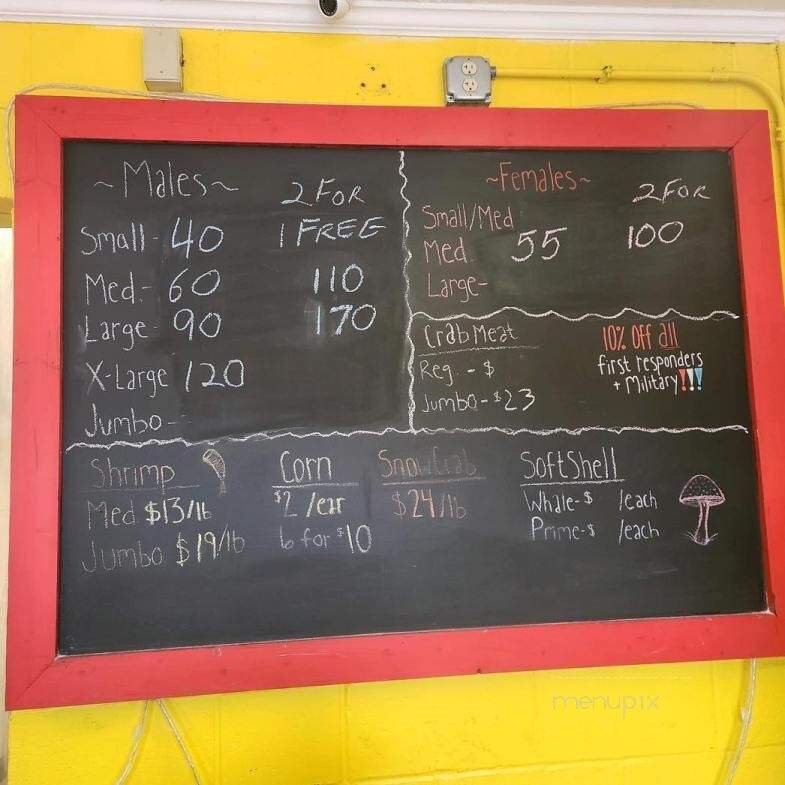 ~Males~ 2 FOR
Small- 40 1 FREE
Med.- 60 110
Large- 90 170
X-Large 120
Jumbo-
~Females~ 2 FOR
Small/Med
Med. 55 100
Large-
Crab Meat
Reg. - $
Jumbo-$23
10% Off all
first responders
+ Military!!!
Shrimp
Med $13/lb
Jumbo $19/lb
Corn
$2 /ear
6 for $10
Snow Crab
$24/lb
SoftShell
Whale-$ /each
Prime-$ /each
menupix